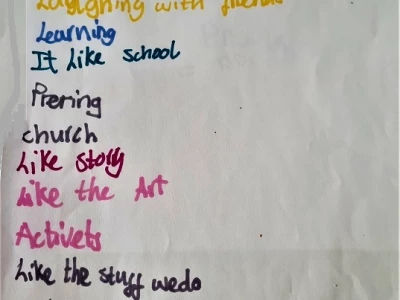 with friends
Learning
It Like school
Prering
church
Like story
Like the Art
Activets
Like the stuff wedo